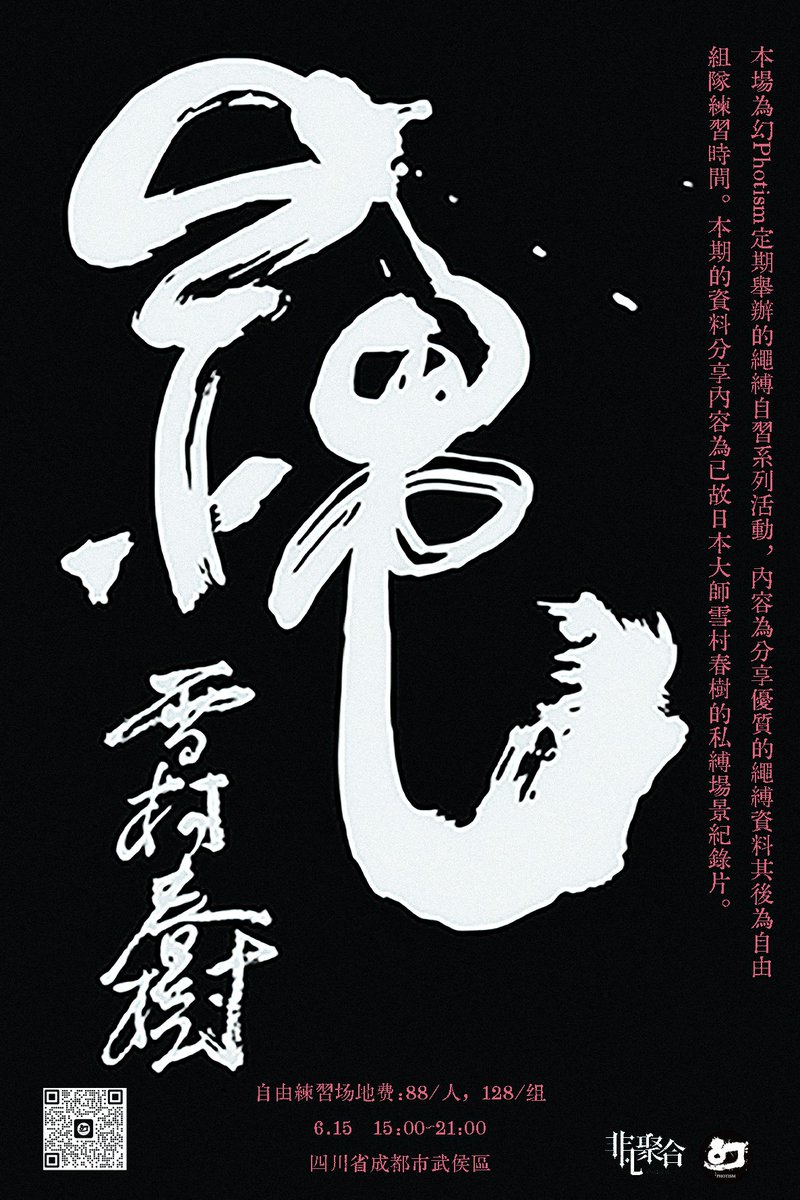 本場為幻Photism定期舉辦的繩縛自習系列活動，內容為分享優質的繩縛資料其後為自由
組隊練習時間。本期的資料分享內容為已故日本大師雪村春樹的私縛場景紀錄片。
縄
雪村春樹
自由練習场地费:88/人，128/组
6.15 15:00-21:00
四川省成都市武侯區
非聚合
幻
PHOTISM